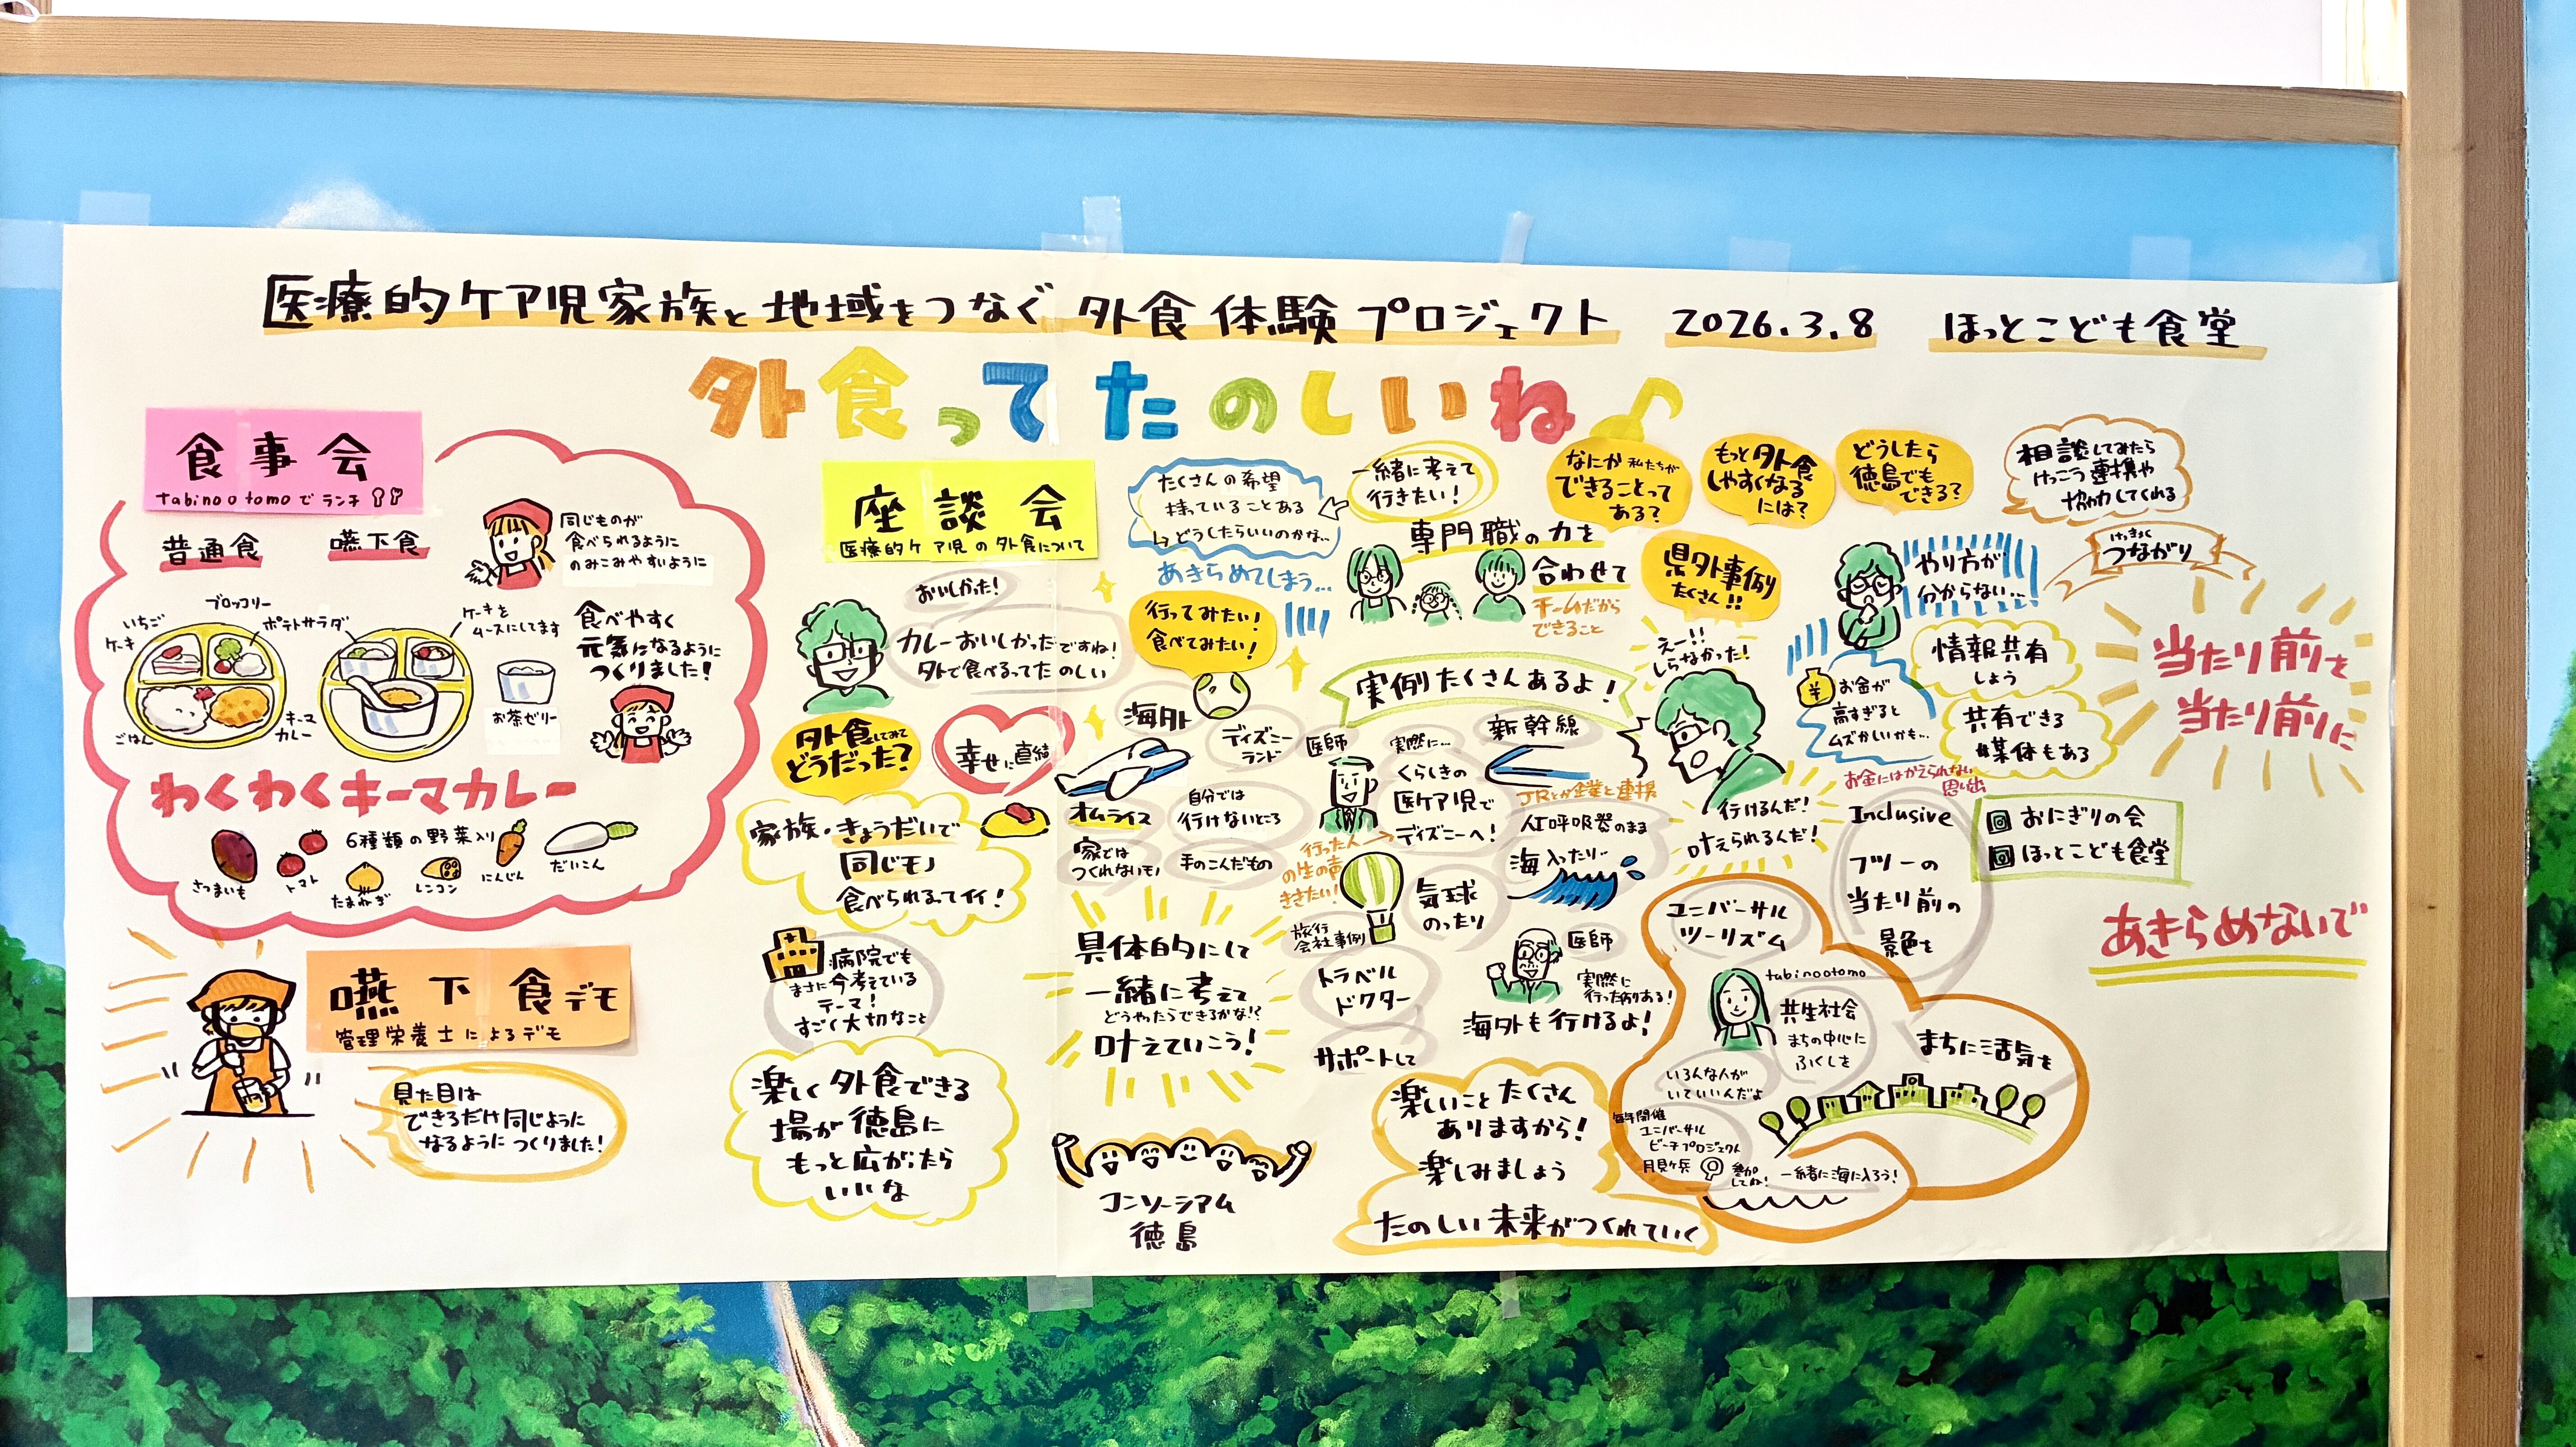 医療的ケア児家族と地域をつなぐ 外食体験プロジェクト 2026.3.8 ほっとこども食堂
外食ってたのしいね♪
食事会
tabinootomoでランチ
普通食
嚥下食
同じものが
食べられるように
のみこみやすいように
いちご
ケーキ
ブロッコリー
ポテトサラダ
ケーキを
ムースにしてます
ごはん
キーマ
カレー
お茶ゼリー
食べやすく
元気になるように
つくりました!
わくわくキーマカレー
6種類の野菜入り
さつまいも
トマト
たまねぎ
レンコン
にんじん
だいこん
嚥下食デモ
管理栄養士によるデモ
見た目は
できるだけ同じように
なるようにつくりました!
座談会
医療的ケア児の外食について
おいしかった!
カレーおいしかったですね!
外で食べるってたのしい
外食してみて
どうだった?
幸せに直結
家族・きょうだいで
同じモノ
食べられるってイイ!
病院でも
まさに今考えている
テーマ!
すごく大切なこと
楽しく外食できる
場が徳島に
もっと広がったら
いいな
たくさんの希望
持っていることある
↳どうしたらいいのかな…
あきらめてしまう…
一緒に考えて
行きたい!
行ってみたい!
食べてみたい!
海外
ディズニー
ランド
オムライス
自分では
行けないところ
家では
つくれないモノ
手のこんだもの
具体的にして
一緒に考えて
どうやったらできるかな!?
叶えていこう!
コンソーシアム
徳島
なにか私たちが
できることって
ある?
もっと外食
しやすくなる
には?
どうしたら
徳島でも
できる?
専門職の力を
合わせて
チームだから
できること
県外事例
たくさん!!
えー!!
しらなかった!
実例たくさんあるよ!
医師
実際に…
くらしきの
医ケア児で
ディズニーへ!
行った人
の生の声
ききたい!
新幹線
JRとか企業と連携
人工呼吸器のまま
海入ったり…
気球
のったり
旅行
会社事例
トラベル
ドクター
サポートして
医師
実際に
行った例ある!
海外も行けるよ!
行けるんだ!
叶えられるんだ!
楽しいことたくさん
ありますから!
楽しみましょう
たのしい未来がつくれていく
相談してみたら
けっこう連携や
協力してくれる
けっきょく
つながり
やり方が
分からない…
お金が
高すぎると
ムズかしいかも…
情報共有
しよう
共有できる
媒体もある
お金にはかえられない
思い出
Inclusive
フツーの
当たり前の
景色を
おにぎりの会
ほっとこども食堂
ユニバーサル
ツーリズム
tabinootomo
共生社会
まちの中心に
ふくしを
いろんな人が
いていいんだよ
まちに活気を
毎年開催
ユニバーサル
ビーチプロジェクト
月見ヶ浜
参加
してね!
一緒に海に入ろう!
当たり前を
当たり前に
あきらめないで